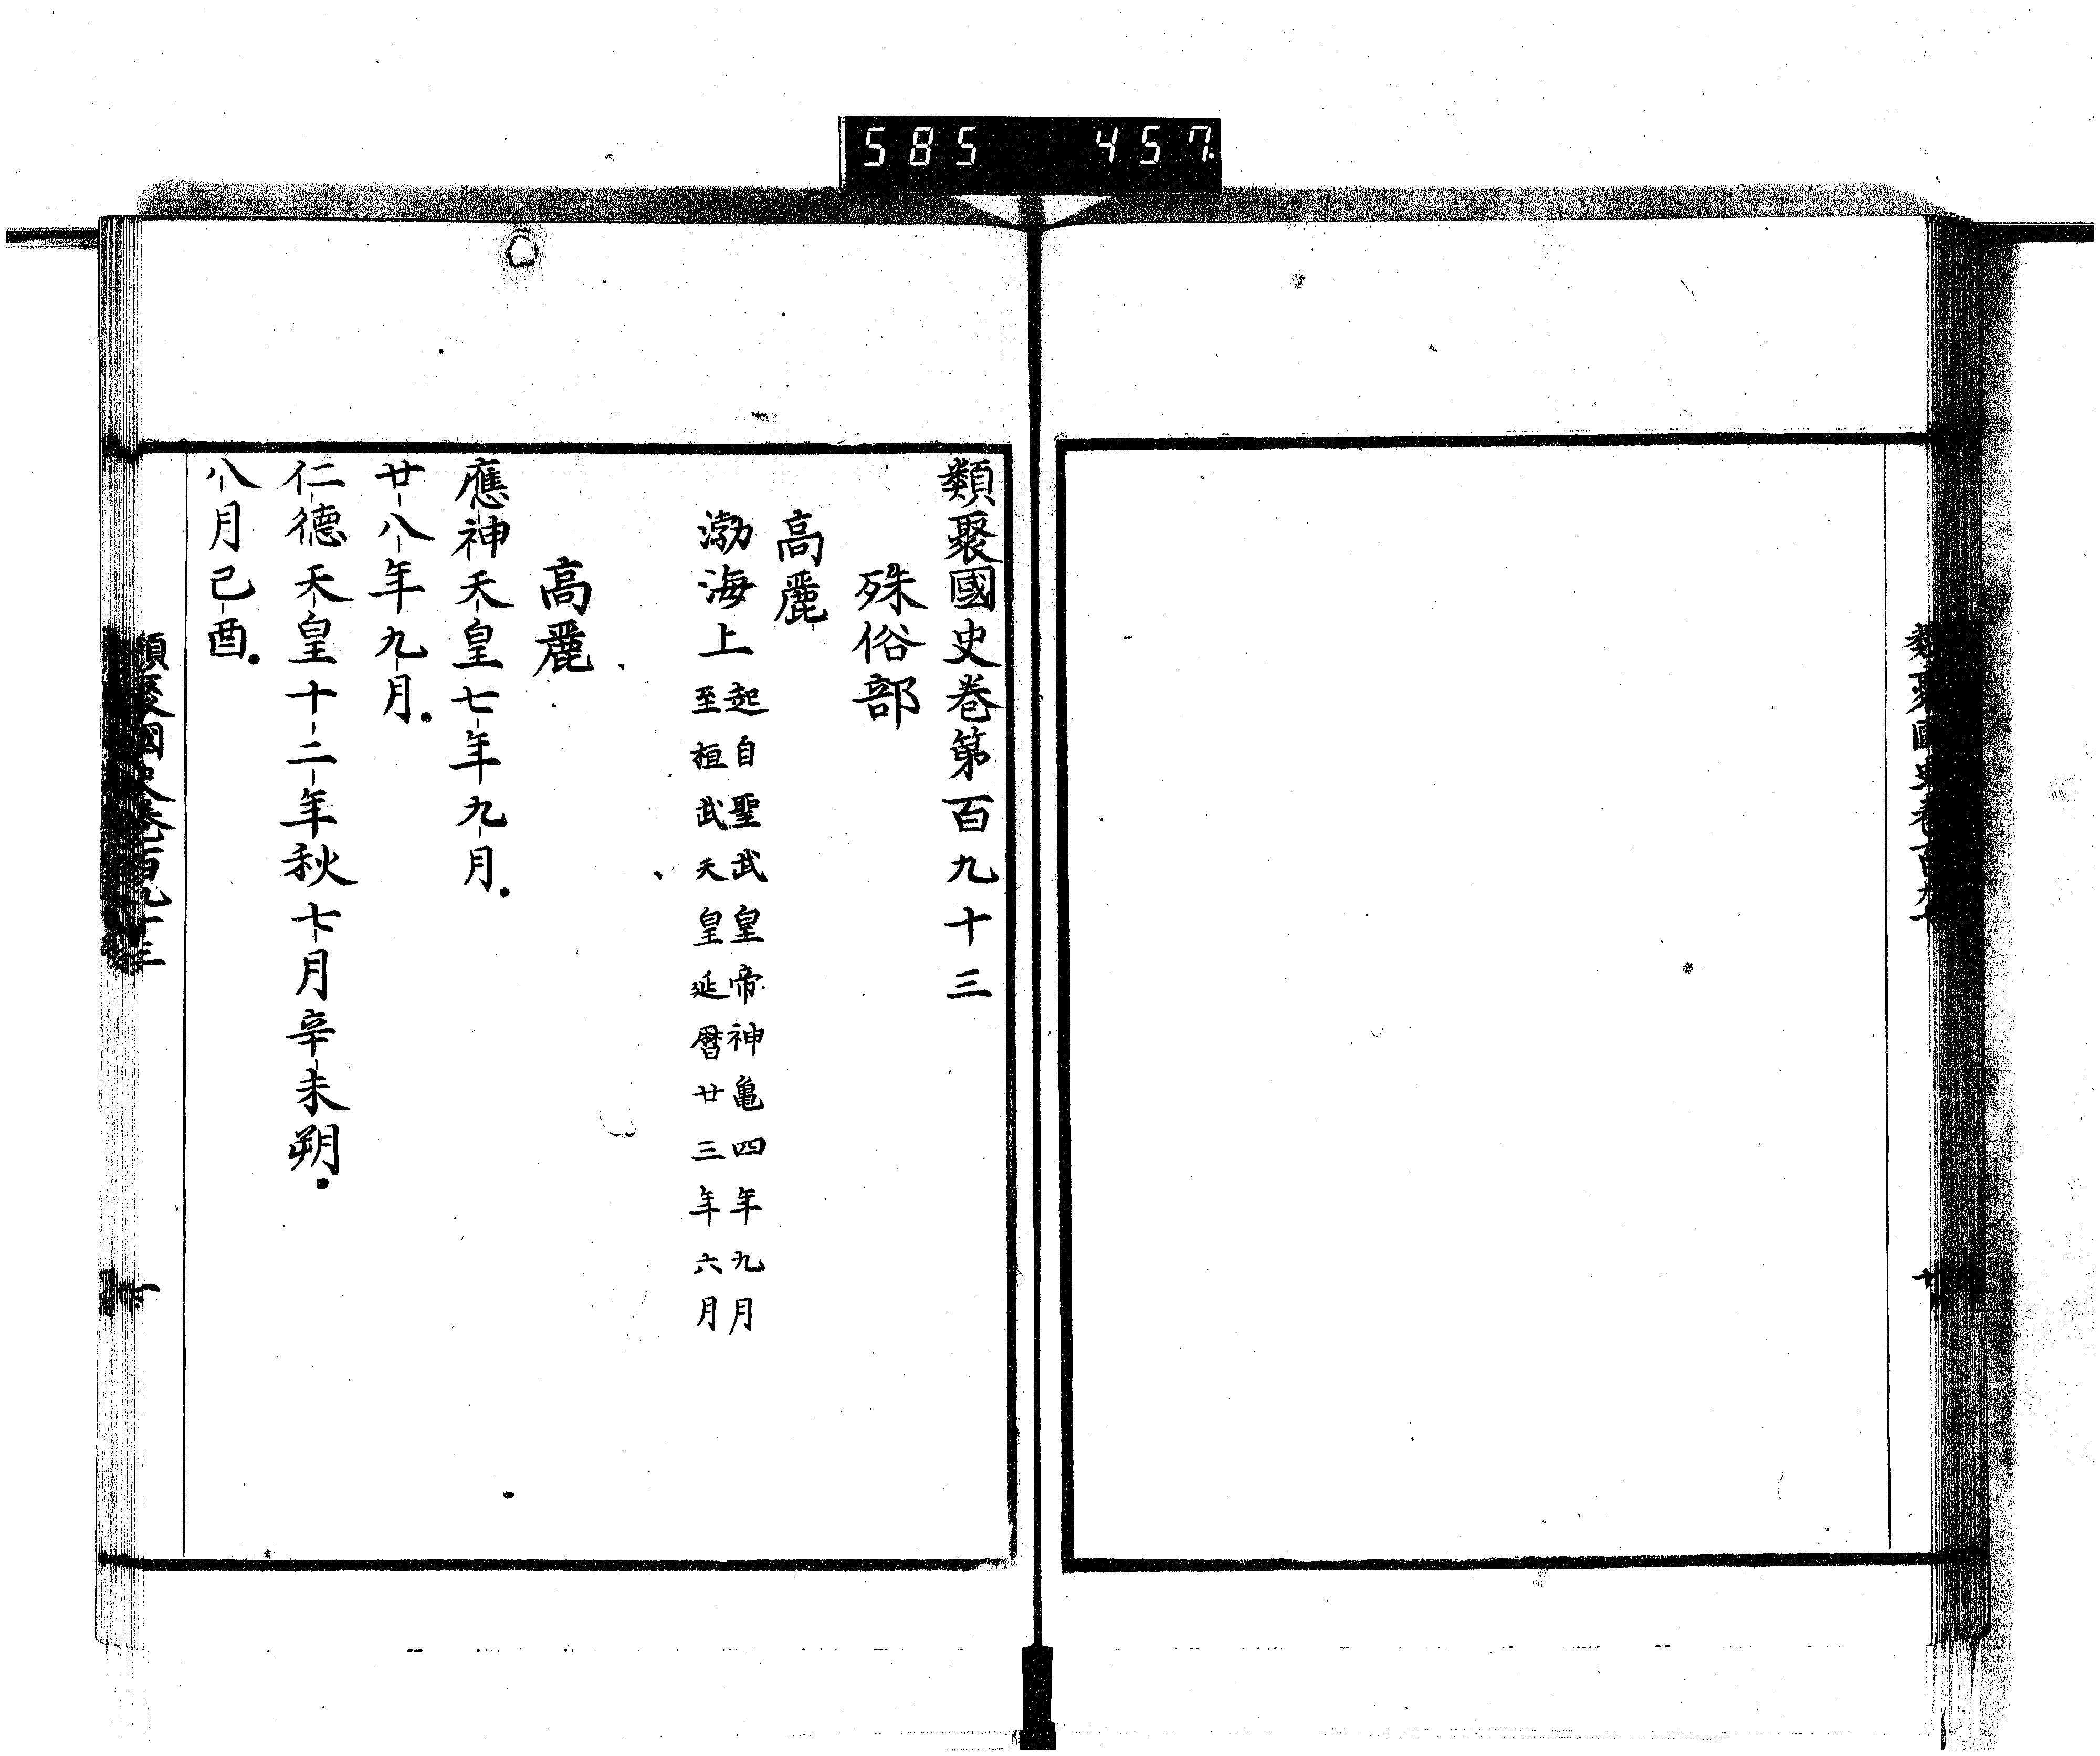 585 457
類聚國史卷第百九十三
殊俗部
高麗
渤海上
起自聖武皇帝神亀四年九月
至桓武天皇延暦廿三年六月
高麗
應神天皇七年九月
廿八年九月
仁德天皇十二年秋七月辛未朔
八月己酉
類聚國史卷百九十三